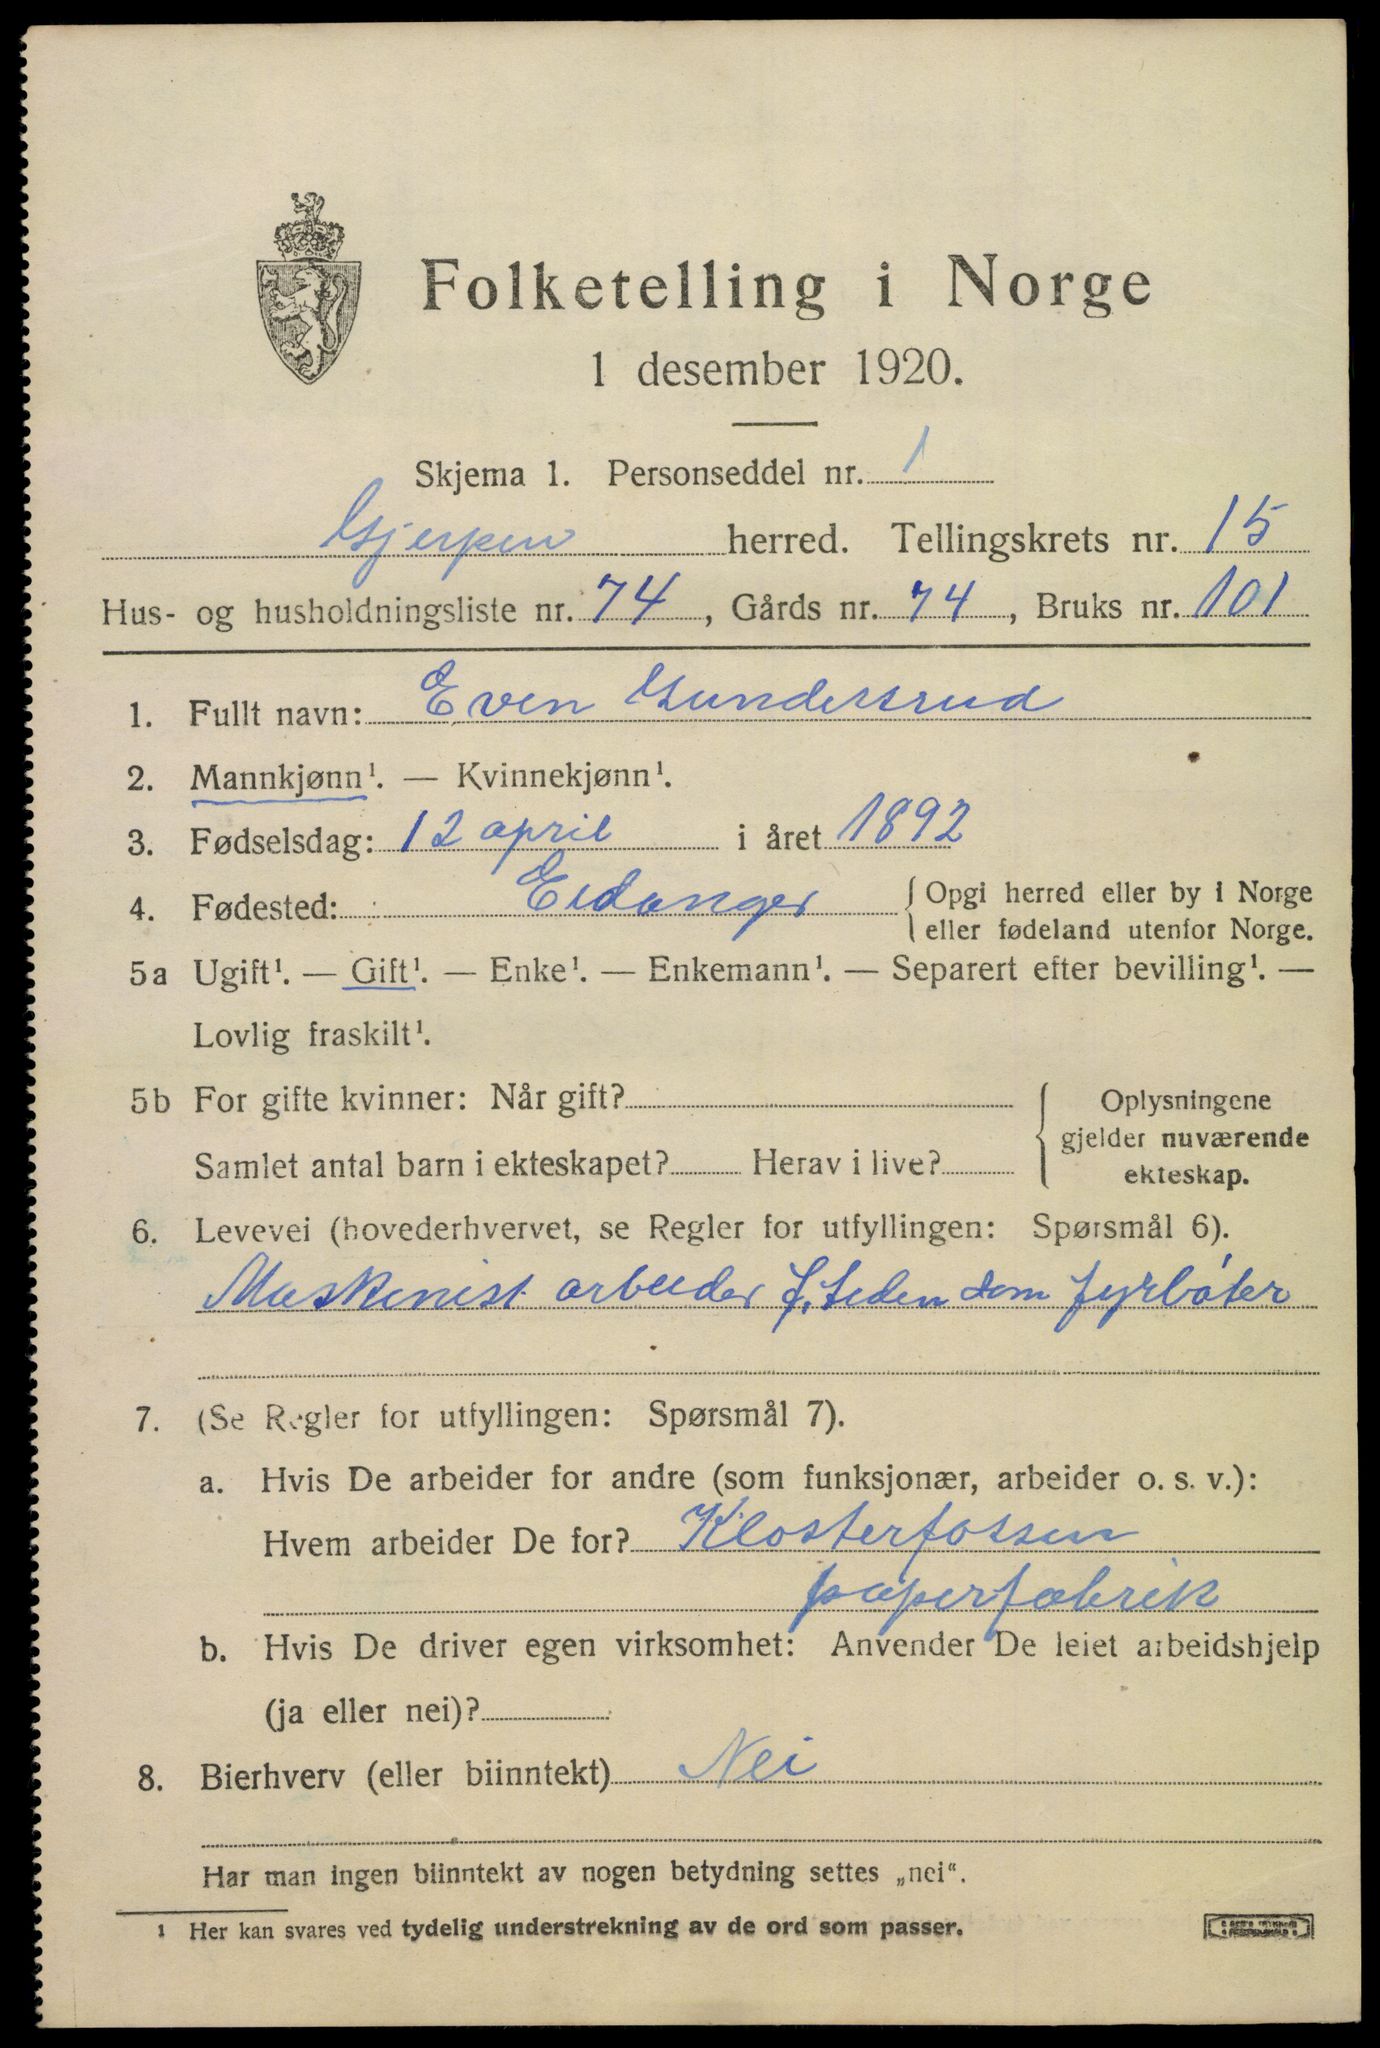 Folketelling i Norge
1 desember 1920.
Skjema 1. Personseddel nr. 1
Gjerpen herred. Tellingskrets nr. 15
Hus- og husholdningsliste nr. 74, Gårds nr. 74, Bruks nr. 101
1. Fullt navn: Even Gundersrud
2. Mannkjønn¹. — Kvinnekjønn¹.
3. Fødselsdag: 12 april i året 1892
4. Fødested: Eidanger { Opgi herred eller by i Norge
eller fødeland utenfor Norge.
5a Ugift¹. — Gift¹. — Enke¹. — Enkemann¹. — Separert efter bevilling¹. —
Lovlig fraskilt¹.
5b For gifte kvinner: Når gift?
Samlet antal barn i ekteskapet? Herav i live?
{ Oplysningene
gjelder nuværende
ekteskap.
6. Levevei (hovederhvervet, se Regler for utfyllingen: Spørsmål 6).
Maskenist arbeider f. tiden som fyrbøter
7. (Se Regler for utfyllingen: Spørsmål 7).
a. Hvis De arbeider for andre (som funksjonær, arbeider o. s. v.):
Hvem arbeider De for? Klosterfossen
papirfabrik
b. Hvis De driver egen virksomhet: Anvender De leiet arbeidshjelp
(ja eller nei)?
8. Bierhverv (eller biinntekt) Nei
Har man ingen biinntekt av nogen betydning settes „nei“.
¹ Her kan svares ved tydelig understrekning av de ord som passer.